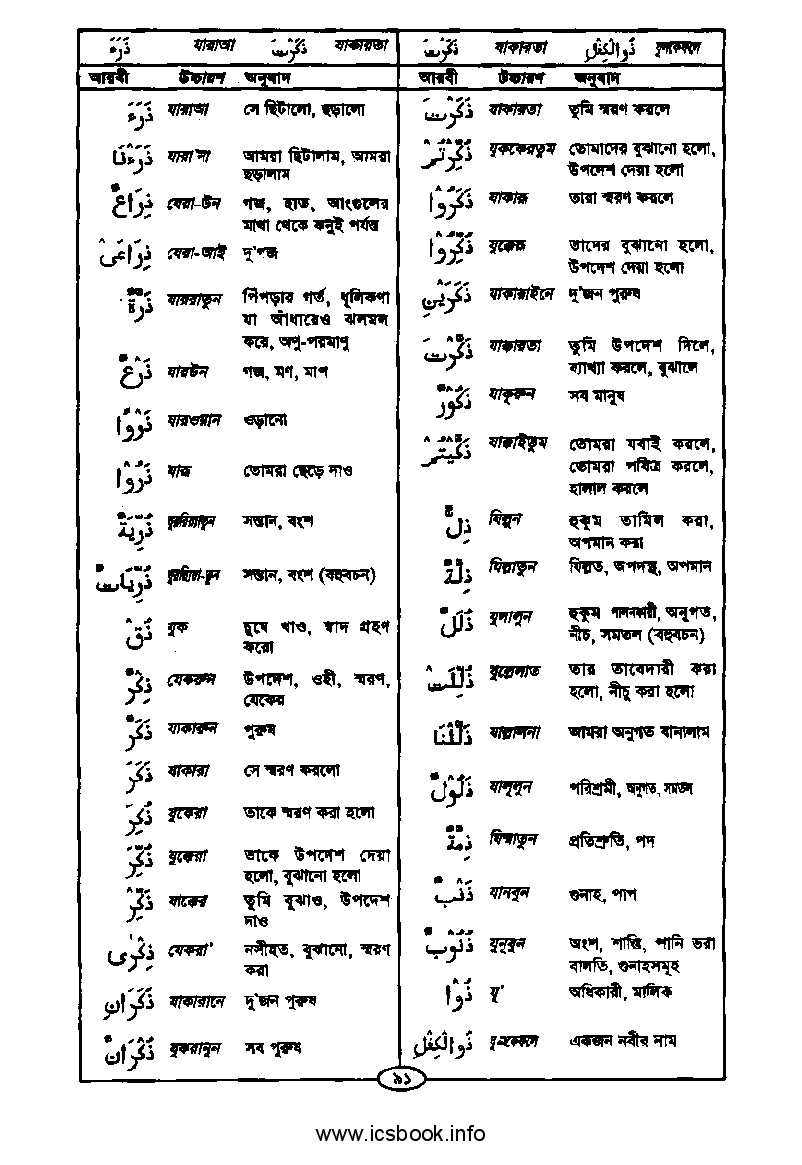 ذَرَءَ যারাআ ذَكَرْتَ যাকারতা
আরবী উচ্চারণ অনুবাদ
ذَرَءَ যারাআ সে ছিটালো, ছড়ালো
ذَرَءْنَا যারা'না আমরা ছিটালাম, আমরা
ছড়ালাম
ذِرَاعٌ যেরা-উন গজ, হাত, আংগুলের
মাথা থেকে কনুই পর্যন্ত
ذِرَاعَىْ যেরা-আই দু'গজ
ذَرَّةٌ যাররাতুন পিঁপড়ার গর্ত, ধূলিকণা
যা আঁধারেও ঝলমল
করে, অণু-পরমাণু
ذَرْعٌ যারউন গজ, মণ, মাপ
ذَرْوًا যারওয়ান ওড়ানো
ذَرُوْا যারূ তোমরা ছেড়ে দাও
ذُرِّيَّةٌ যুররিয়াতুন সন্তান, বংশ
ذُرِّيَّاتٌ যুররিয়া-তুন সন্তান, বংশ (বহুবচন)
ذُقْ যুক চুষে খাও, স্বাদ গ্রহণ
করো
ذِكْرٌ যেকরুন উপদেশ, ওহী, স্মরণ,
যেকের
ذَكَرٌ যাকারুন পুরুষ
ذَكَرَ যাকারা সে স্মরণ করলো
ذُكِرَ যুকেরা তাকে স্মরণ করা হলো
ذُكِّرَ যুক্কেরা তাকে উপদেশ দেয়া
হলো, বুঝানো হলো
ذَكِّرْ যাক্কের তুমি বুঝাও, উপদেশ
দাও
ذِكْرٰى যেকরা' নসীহত, বুঝানো, স্মরণ
করা
ذَكَرَانِ যাকারানে দু'জন পুরুষ
ذُكْرَانٌ যুকরানুন সব পুরুষ
ذَكَرْتَ যাকারতা ذُوالْكِفْلِ যুলকেফলে
আরবী উচ্চারণ অনুবাদ
ذَكَرْتَ যাকারতা তুমি স্মরণ করলে
ذُكِّرْتُمْ যুককেরতুম তোমাদের বুঝানো হলো,
উপদেশ দেয়া হলো
ذَكَرُوْا যাকারূ তারা স্মরণ করলে
ذُكِّرُوْا যুক্কেরূ তাদের বুঝানো হলো,
উপদেশ দেয়া হলো
ذَكَرَيْنِ যাকারাইনে দু'জন পুরুষ
ذَكَّرْتَ যাক্কারতা তুমি উপদেশ দিলে,
ব্যাখ্যা করলে, বুঝালে
ذُكُوْرٌ যাকূরুন সব মানুষ
ذَكَّيْتُمْ যাক্কাইতুম তোমরা যবাই করলে,
তোমরা পবিত্র করলে,
হালাল করলে
ذِلٌّ যিল্লুন হুকুম তামিল করা,
অপমান করা
ذِلَّةٌ যিল্লাতুন যিল্লত, অপদস্থ, অপমান
ذُلُلٌ যুলালুন হুকুম পালনকারী, অনুগত,
নীচ, সমতল (বহুবচন)
ذُلِّلَتْ যুল্লেলাত তার তাবেদারী করা
হলো, নীচু করা হলো
ذَلَّلْنَا যাল্লালনা আমরা অনুগত বানালাম
ذَلُوْلٌ যালূলুন পরিশ্রমী, অনুগত, সমতল
ذِمَّةٌ যিম্মাতুন প্রতিশ্রুতি, পদ
ذَنْبٌ যানবুন গুনাহ, পাপ
ذُنُوْبٌ যুনূবুন অংশ, শাস্তি, পানি ভরা
বালতি, গুনাহসমূহ
ذُوْا যূ' অধিকারী, মালিক
ذُوالْكِفْلِ যুলকেফলে একজন নবীর নাম
৯১
www.icsbook.info